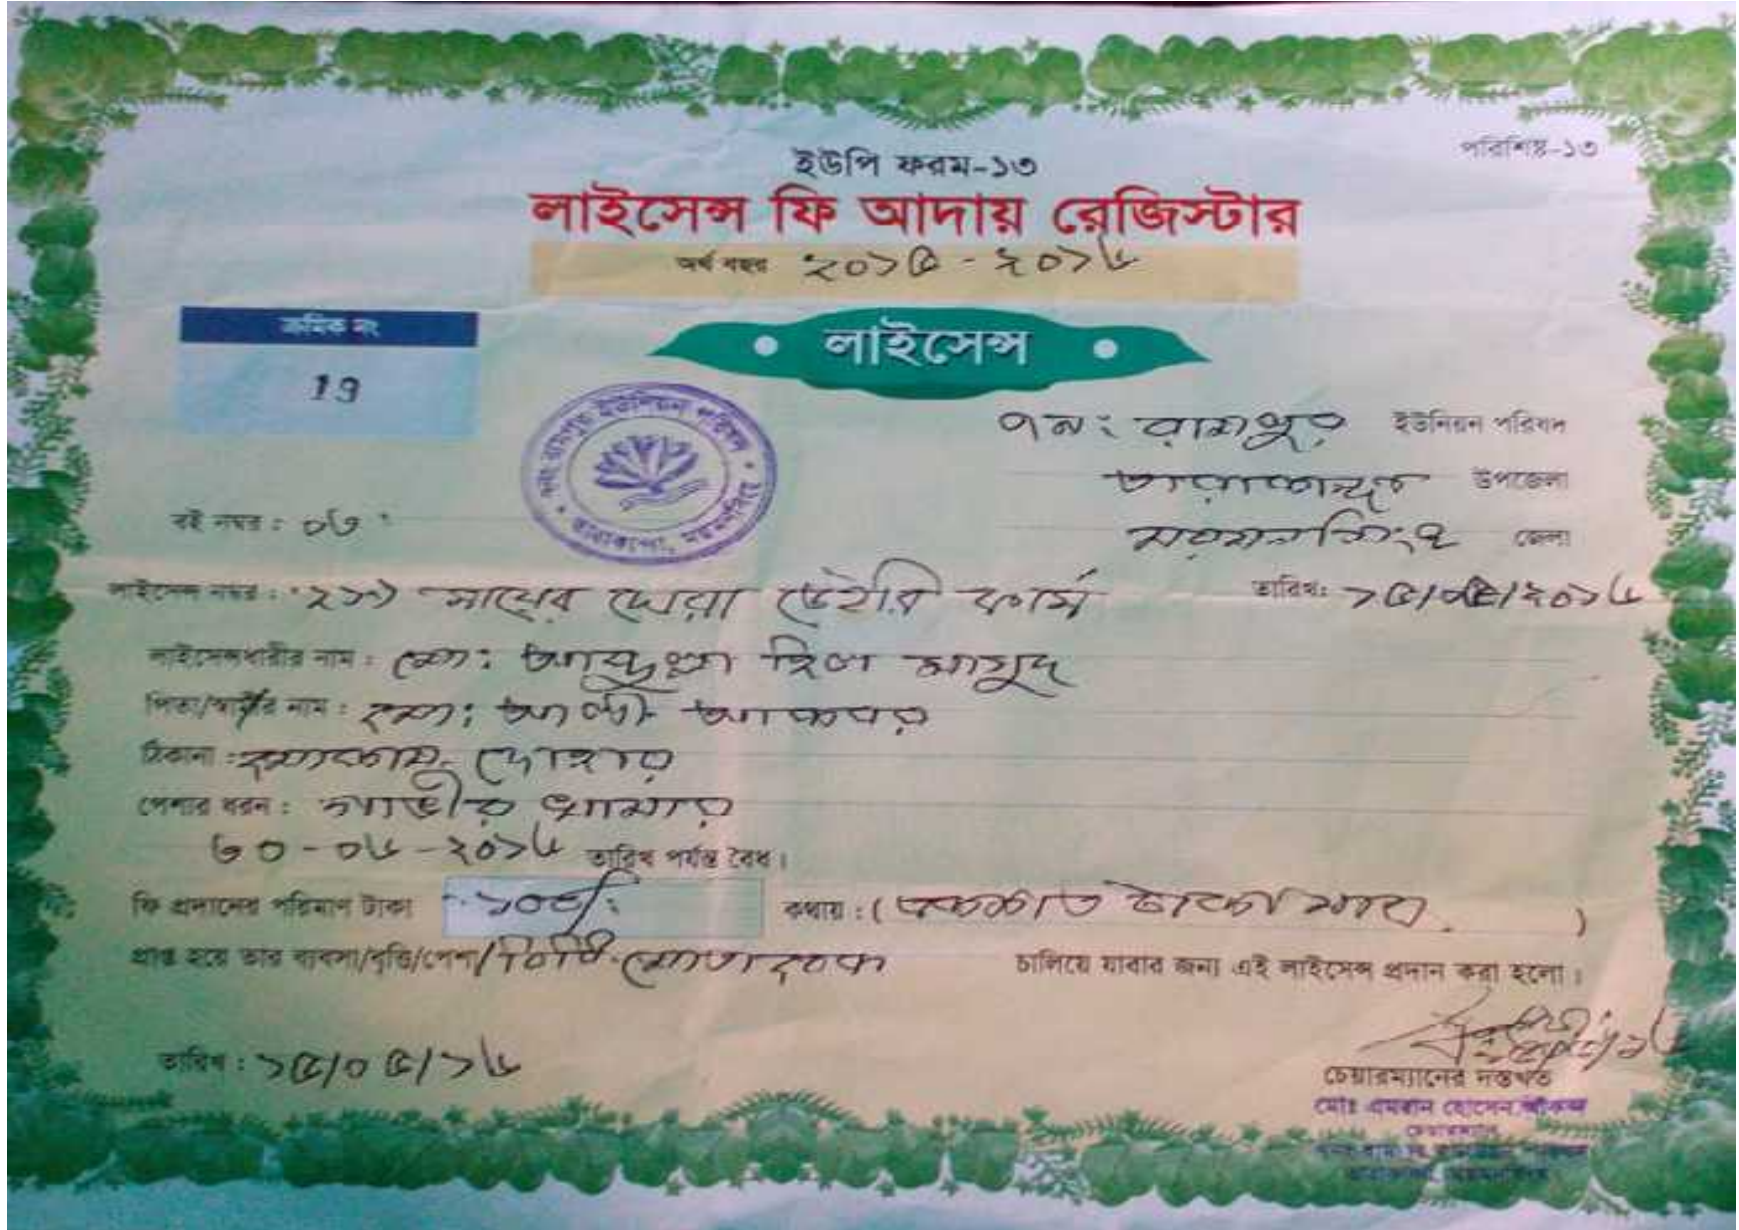 পরিশিষ্ট-১৩
ইউপি ফরম-১৩
লাইসেন্স ফি আদায় রেজিস্টার
অর্থ বছর ২০১৫-২০১৬
ক্রমিক নং
লাইসেন্স
19
৭নং রামপুর ইউনিয়ন পরিষদ
তারাকান্দা উপজেলা
বই নম্বর : ০৩
ময়মনসিংহ জেলা
লাইসেন্স নম্বর : মায়ের দোয়া ডেইরি ফার্ম তারিখ: ১৫/০৫/২০১৬
লাইসেন্সধারীর নাম : মো: মাসুদ
পিতা/স্বামীর নাম : মো: আলী আকবর
ঠিকানা :
পেশার ধরন : গাভীর খামার
৩০-০৬-২০১৬ তারিখ পর্যন্ত বৈধ।
ফি প্রদানের পরিমাণ টাকা ১০০/- কথায় : ( একশত টাকা মাত্র. )
প্রাপ্ত হয়ে তার ব্যবসা/বৃত্তি/পেশা/ চালিয়ে যাবার জন্য এই লাইসেন্স প্রদান করা হলো।
তারিখ : ১৫/০৫/১৬
চেয়ারম্যানের দস্তখত
মোঃ এমরান হোসেন
চেয়ারম্যান